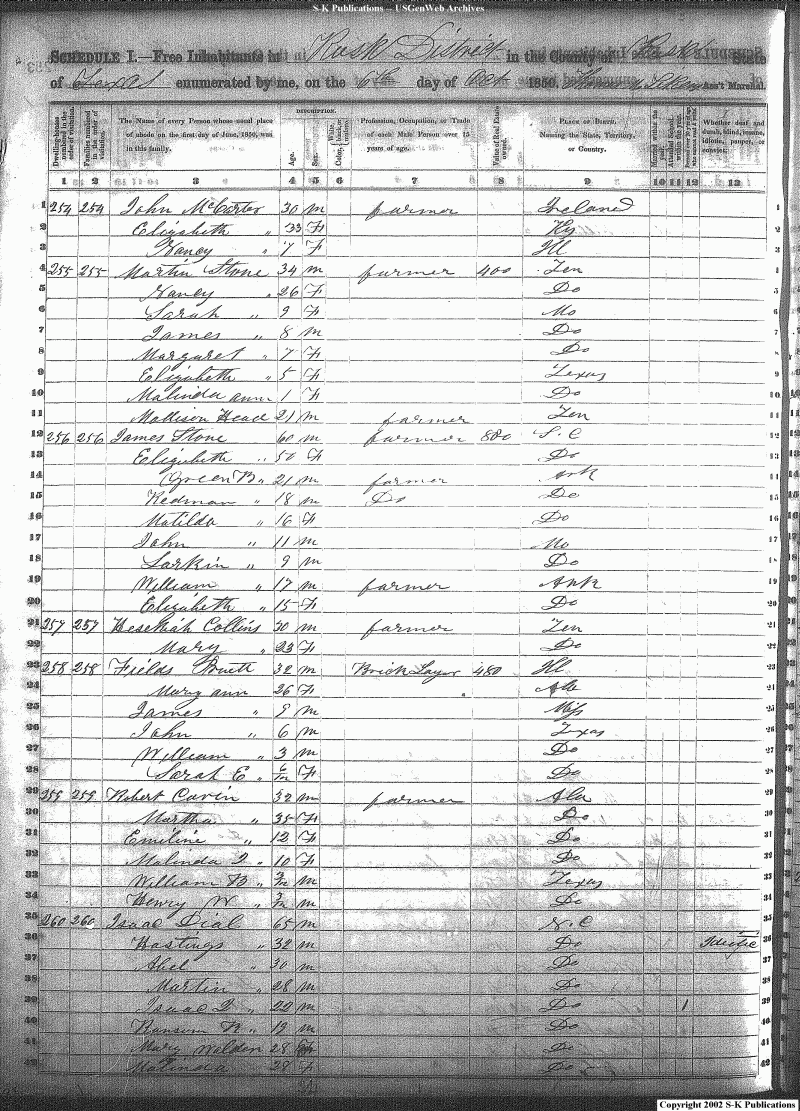 S-K Publications -- USGenWeb Archives
SCHEDULE I.—Free Inhabitants in Rusk District in the County of Rusk State
of Texas enumerated by me, on the 6th day of Oct 1850. Ass't Marshal.
DESCRIPTION.
Dwelling-houses numbered in the order of visitation. Families numbered in the order of visitation. The Name of every Person whose usual place of abode on the first day of June, 1850, was in this family. Age. Sex. Color, Profession, Occupation, or Trade of each Male Person over 15 years of age. Value of Real Estate owned. PLACE OF BIRTH. Naming the State, Territory, or Country. Married within the year. Attended School within the year. Whether deaf and dumb, blind, insane, idiotic, pauper, or convict.
1 2 3 4 5 6 7 8 9 10 11 12 13
1 254 254 John McCarter 30 m farmer Ireland 1
2 Elizabeth " 33 F Ky 2
3 Nancy " 7 F Ill 3
4 255 255 Martin Stone 34 m farmer 400 Ten 4
5 Nancy " 26 F Do 5
6 Sarah " 9 F Mo 6
7 James " 8 m Do 7
8 Margaret " 7 F Do 8
9 Elizabeth " 5 F Texas 9
10 Malinda ann 1 F Do 10
11 Mattison Head 21 m farmer Ten 11
12 256 256 James Stone 60 m farmer 880 S. C 12
13 Elizabeth " 50 F Do 13
14 Green B " 21 m farmer Ark 14
15 Redman " 18 m Do Do 15
16 Matilda " 16 F Do 16
17 John " 11 m Mo 17
18 Larkin " 9 m Do 18
19 William " 17 m farmer Ark 19
20 Elizabeth " 15 F Do 20
21 257 257 Hesekiah Collins 30 m farmer Ten 21
22 Mary " 23 F Do 22
23 258 258 Fields Pruitt 32 m Brick Layer 480 Ill 23
24 Mary ann 26 F Ala 24
25 James " 9 m Miss 25
26 John " 6 m Texas 26
27 William " 3 m Do 27
28 Sarah E " 6/12 F Do 28
29 259 259 Robert Cavin 32 m farmer Ala 29
30 Martha " 35 F Do 30
31 Emiline " 12 F Do 31
32 Malinda J " 10 F Do 32
33 William B " m Texas 33
34 Henry W " m Do 34
35 260 260 Isaac Dial 65 m N. C 35
36 Hastings " 32 m Do Idiotic 36
37 Abel " 30 m Do 37
38 Martin " 28 m Do 38
39 Isaac J " 22 m Do 1 39
40 Ransom R " 19 m Do 40
41 Mary Weldon 28 F Do 41
42 Malinda 28 F Do 42
Copyright 2002 S-K Publications